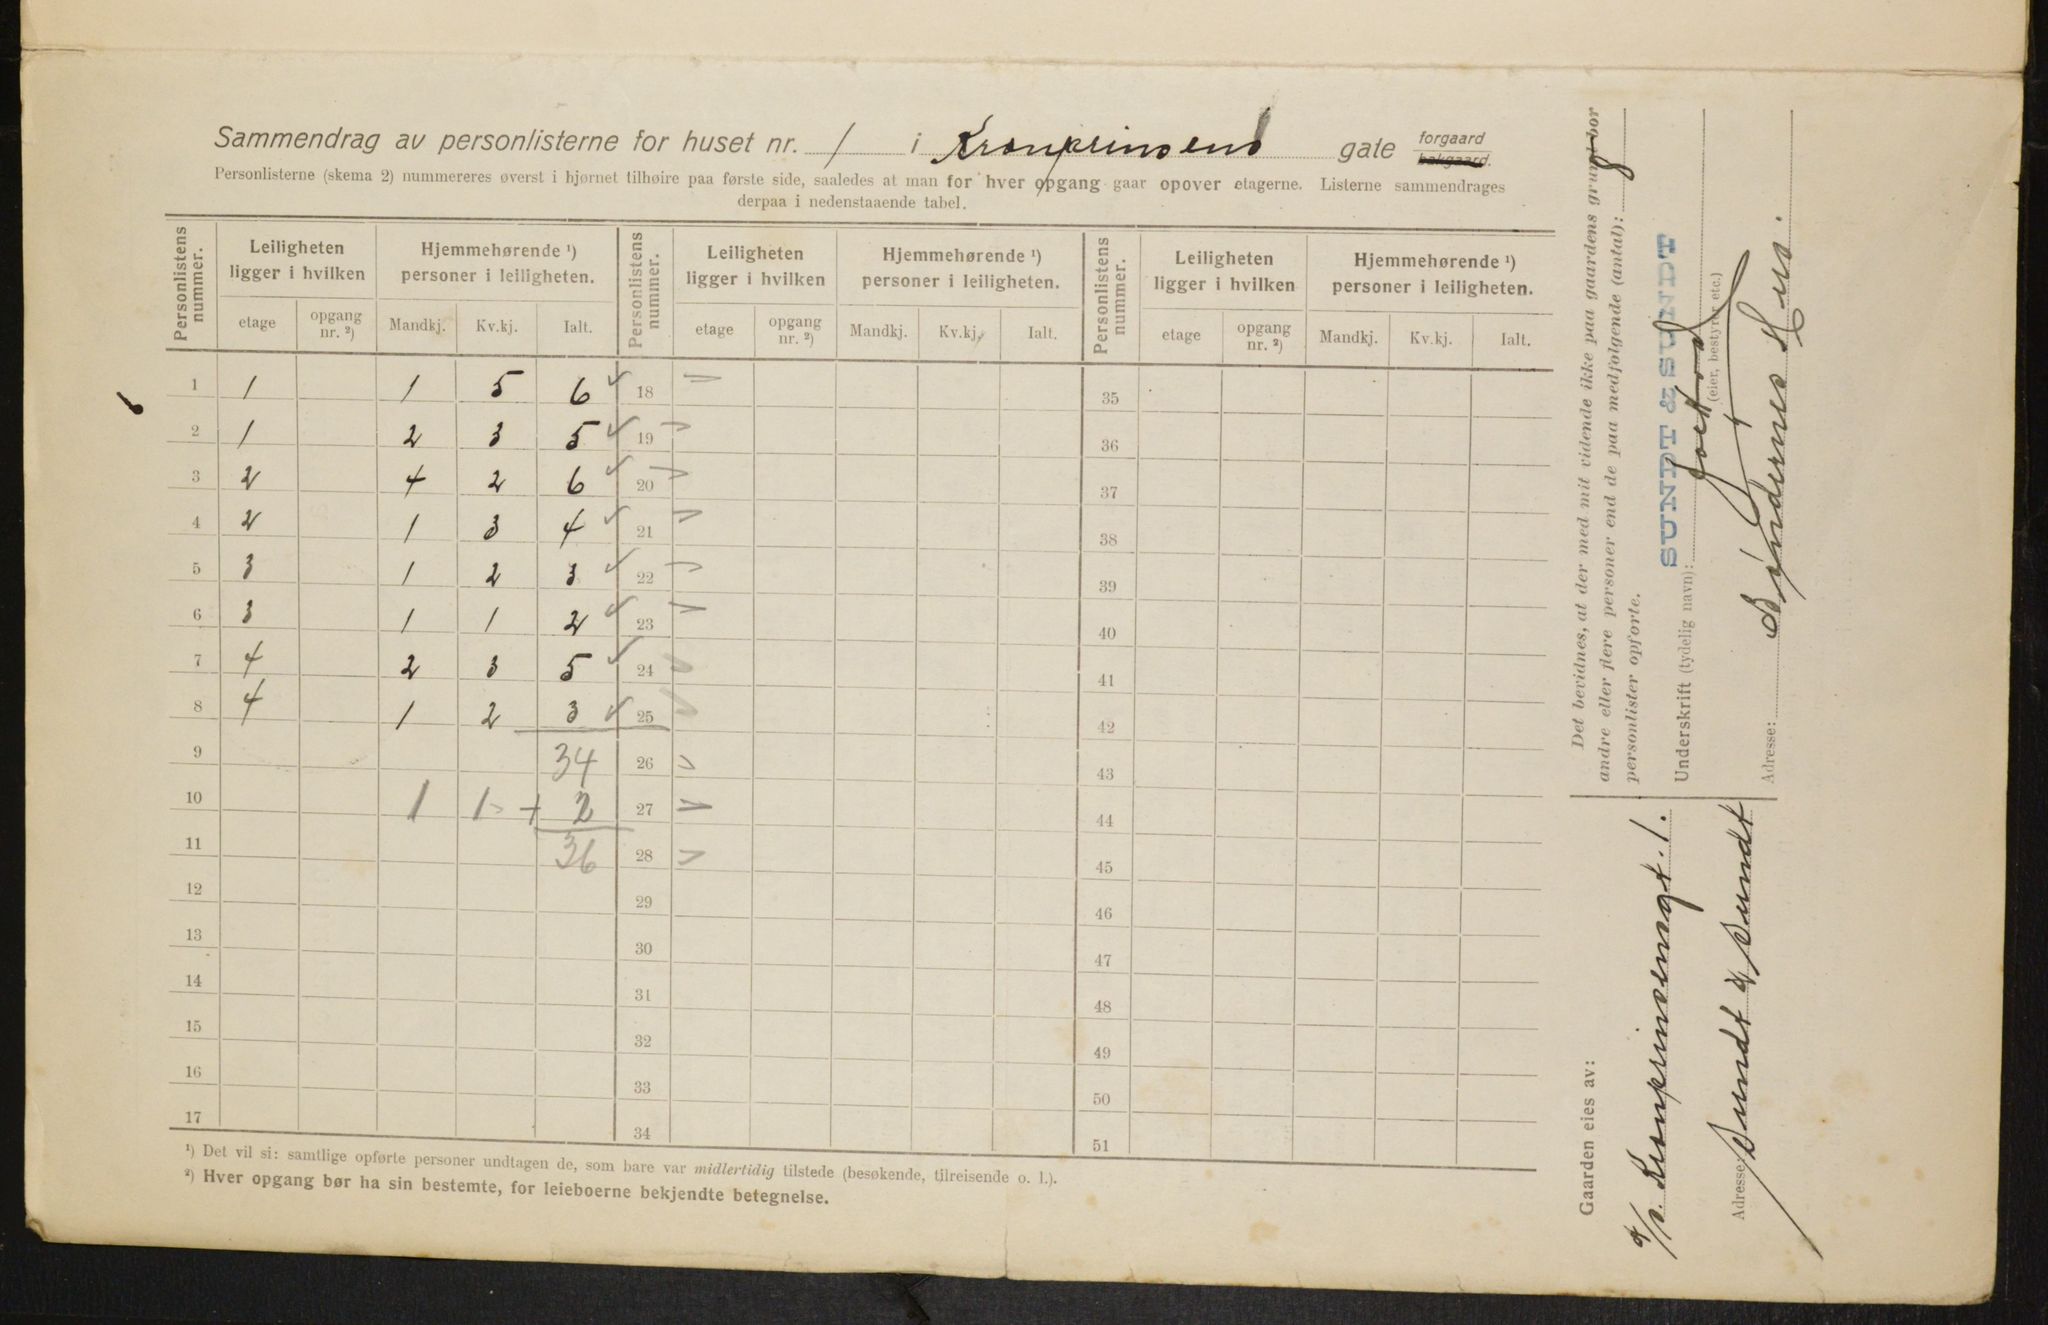 Sammendrag av personlisterne for huset nr. 1 i Kronprinsens gate forgaard bakgaard.
Personlisterne (skema 2) nummereres øverst i hjørnet tilhøire paa første side, saaledes at man for hver opgang gaar opover etagerne. Listerne sammendrages
derpaa i nedenstaaende tabel.
Personlistens nummer. Leiligheten ligger i hvilken Hjemmehørende ¹) personer i leiligheten. Personlistens nummer. Leiligheten ligger i hvilken Hjemmehørende ¹) personer i leiligheten. Personlistens nummer. Leiligheten ligger i hvilken Hjemmehørende ¹) personer i leiligheten.
etage opgang nr. ²) Mandkj. Kv.kj. Ialt. etage opgang nr. ²) Mandkj. Kv.kj. Ialt. etage opgang nr. ²) Mandkj. Kv.kj. Ialt.
1 1 1 5 6 18 35
2 1 2 3 5 19 36
3 2 4 2 6 20 37
4 2 1 3 4 21 38
5 3 1 2 3 22 39
6 3 1 1 2 23 40
7 4 2 3 5 24 41
8 4 1 2 3 25 42
9 34 26 43
10 1 1 + 2 27 44
11 36 28 45
12 29 46
13 30 47
14 31 48
15 32 49
16 33 50
17 34 51
¹) Det vil si: samtlige opførte personer undtagen de, som bare var midlertidig tilstede (besøkende, tilreisende o. l.).
²) Hver opgang bør ha sin bestemte, for leieboerne bekjendte betegnelse.
Det bevidnes, at der med mit vidende ikke paa gaardens grund bor
andre eller flere personer end de paa medfølgende (antal): 8
personlister opførte.
SUNDT & SUNDT
Underskrift (tydelig navn):
(eier, bestyrer etc.)
Adresse:
Gaarden eies av:
A/S. Kronprinsensgt. 1.
Adresse: Sundt & Sundt